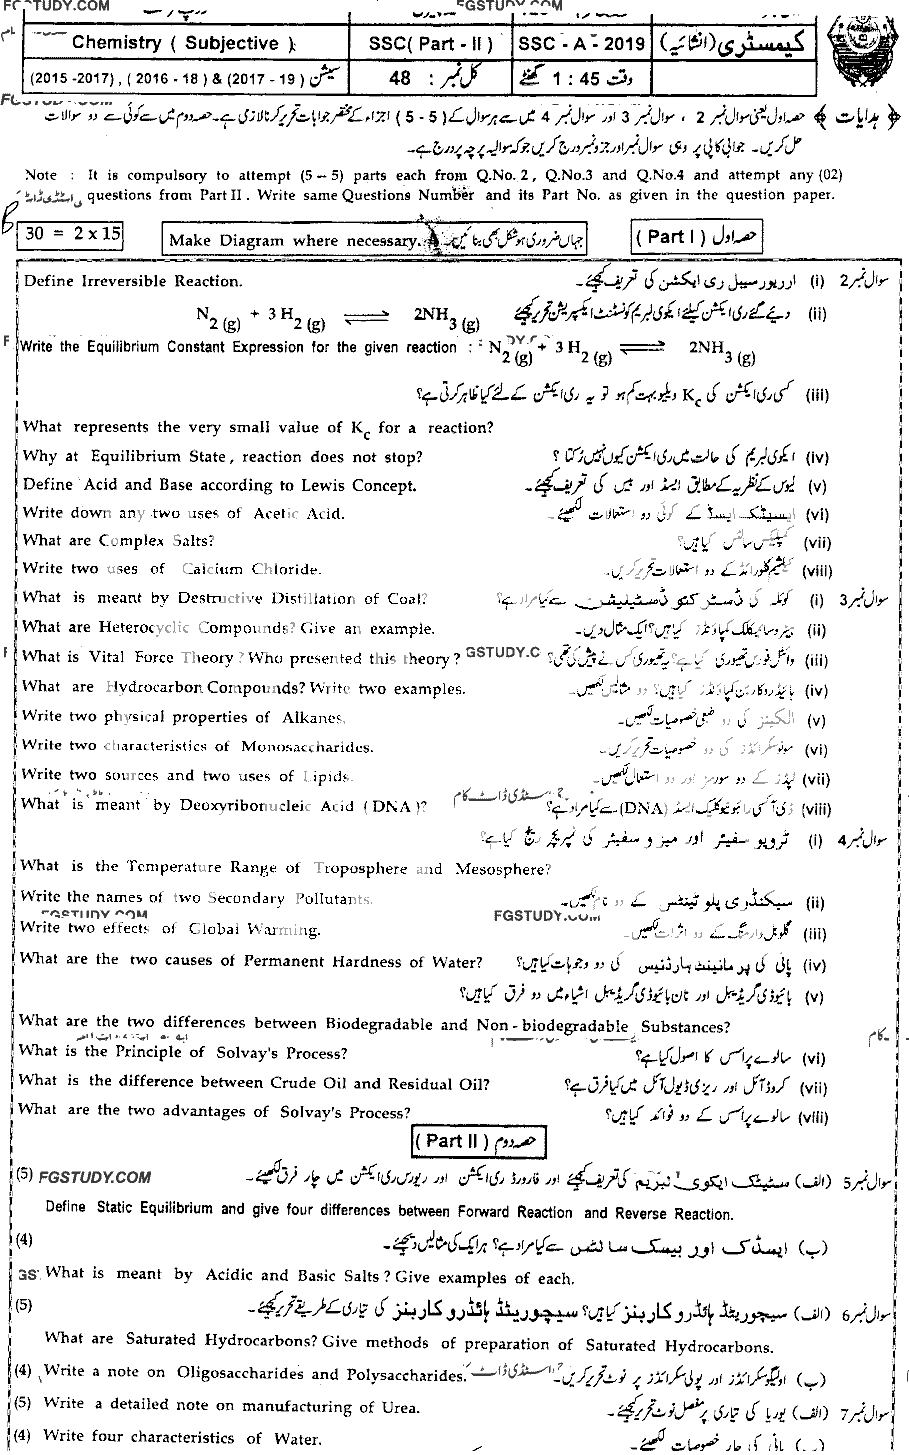 FGSTUDY.COM FGSTUDY.COM
Chemistry ( Subjective ) SSC( Part - II ) SSC - A - 2019 کیمسٹری (انشائیہ)
(2015 -2017) , ( 2016 - 18 ) & (2017 - 19 ) سیشن کل نمبر : 48 وقت 1 : 45 گھنٹے
FGSTUDY.COM
ہدایات ﴾ حصہ اول یعنی سوال نمبر 2 ، سوال نمبر 3 اور سوال نمبر 4 میں سے ہر سوال کے ( 5 - 5 ) اجزاء کے مختصر جوابات تحریر کرنا لازمی ہے۔ حصہ دوم میں سے کوئی سے دو سوالات
حل کریں۔ جوابی کاپی پر وہی سوال نمبر اور جز نمبر درج کریں جو کہ سوالیہ پرچہ پر درج ہے۔
Note : It is compulsory to attempt (5 – 5) parts each from Q.No. 2 , Q.No.3 and Q.No.4 and attempt any (02)
questions from Part II . Write same Questions Number and its Part No. as given in the question paper.
30 = 2 x 15 Make Diagram where necessary. جہاں ضروری ہو شکل بھی بنائیں۔ حصہ اول ( Part I )
Define Irreversible Reaction. سوال نمبر 2 (i) ارریورسیبل ری ایکشن کی تعریف کیجئے۔
N2 (g) + 3 H2 (g) ⇌ 2NH3 (g) (ii) دیئے گئے ری ایکشن کیلئے ایکوی لبریم کونسٹنٹ ایکسپریشن تحریر کیجئے
Write the Equilibrium Constant Expression for the given reaction : N2 (g) + 3 H2 (g) ⇌ 2NH3 (g)
(iii) کسی ری ایکشن کی Kc ویلیو بہت کم ہو تو یہ ری ایکشن کے لئے کیا ظاہر کرتی ہے؟
What represents the very small value of Kc for a reaction?
Why at Equilibrium State , reaction does not stop? (iv) ایکوی لبریم کی حالت میں ری ایکشن کیوں نہیں رُکتا ؟
Define Acid and Base according to Lewis Concept. (v) لیوس کے نظریہ کے مطابق ایسڈ اور بیس کی تعریف کیجئے۔
Write down any two uses of Acetic Acid. (vi) ایسیٹک ایسڈ کے کوئی دو استعمالات لکھیئے۔
What are Complex Salts? (vii) کمپلیکس سالٹس کیا ہیں؟
Write two uses of Calcium Chloride. (viii) کیلشیم کلورائڈ کے دو استعمالات تحریر کریں۔
What is meant by Destructive Distillation of Coal? سوال نمبر 3 (i) کوئلہ کی ڈسٹرکٹو ڈسٹیلیشن سے کیا مراد ہے؟
What are Heterocyclic Compounds? Give an example. (ii) ہیٹروسائیکلک کمپاؤنڈز کیا ہیں؟ ایک مثال دیں۔
What is Vital Force Theory ? Who presented this theory ? GSTUDY.C (iii) وائٹل فورس تھیوری کیا ہے؟ یہ تھیوری کس نے پیش کی تھی؟
What are Hydrocarbon Compounds? Write two examples. (iv) ہائیڈروکاربن کمپاؤنڈز کیا ہیں؟ دو مثالیں لکھیں۔
Write two physical properties of Alkanes. (v) الکینز کی دو طبعی خصوصیات لکھیں۔
Write two characteristics of Monosaccharides. (vi) مونوسکرائڈز کی دو خصوصیات تحریر کریں۔
Write two sources and two uses of Lipids. (vii) لپڈز کے دو سورسز اور دو استعمال لکھیں۔
What is meant by Deoxyribonucleic Acid ( DNA )? (viii) ڈی آکسی رائبونیوکلیک ایسڈ (DNA) سے کیا مراد ہے؟
سوال نمبر 4 (i) ٹروپوسفیئر اور میزوسفیئر کی ٹمپریچر رینج کیا ہے؟
What is the Temperature Range of Troposphere and Mesosphere?
Write the names of two Secondary Pollutants. (ii) سیکنڈری پلوٹینٹس کے دو نام لکھیں۔
FGSTUDY.COM FGSTUDY.COM
Write two effects of Global Warming. (iii) گلوبل وارمنگ کے دو اثرات لکھیں۔
What are the two causes of Permanent Hardness of Water? (iv) پانی کی پرمانینٹ ہارڈنیس کی دو وجوہات کیا ہیں؟
(v) بائیوڈی گریڈیبل اور نان بائیوڈی گریڈیبل اشیاء میں دو فرق کیا ہیں؟
What are the two differences between Biodegradable and Non - biodegradable Substances?
What is the Principle of Solvay's Process? (vi) سالوے پراسس کا اصول کیا ہے؟
What is the difference between Crude Oil and Residual Oil? (vii) کروڈ آئل اور ریزی ڈیول آئل میں کیا فرق ہے؟
What are the two advantages of Solvay's Process? (viii) سالوے پراسس کے دو فوائد کیا ہیں؟
( Part II ) حصہ دوم
(5) FGSTUDY.COM سوال نمبر 5 (الف) سٹیٹک ایکوی لبریم کی تعریف کیجئے اور فارورڈ ری ایکشن اور ریورس ری ایکشن میں چار فرق لکھیئے۔
Define Static Equilibrium and give four differences between Forward Reaction and Reverse Reaction.
(4) (ب) ایسڈک اور بیسک سالٹس سے کیا مراد ہے؟ ہر ایک کی مثالیں دیجئے۔
GS What is meant by Acidic and Basic Salts ? Give examples of each.
(5) سوال نمبر 6 (الف) سیچوریٹڈ ہائڈروکاربنز کیا ہیں؟ سیچوریٹڈ ہائڈروکاربنز کی تیاری کے طریقے تحریر کیجئے۔
What are Saturated Hydrocarbons? Give methods of preparation of Saturated Hydrocarbons.
(4) Write a note on Oligosaccharides and Polysaccharides. (ب) اولیگوسکرائڈز اور پولی سکرائڈز پر نوٹ تحریر کریں۔
(5) Write a detailed note on manufacturing of Urea. سوال نمبر 7 (الف) یوریا کی تیاری پر مفصل نوٹ تحریر کیجئے۔
(4) Write four characteristics of Water. (ب) پانی کی چار خصوصیات لکھیئے۔